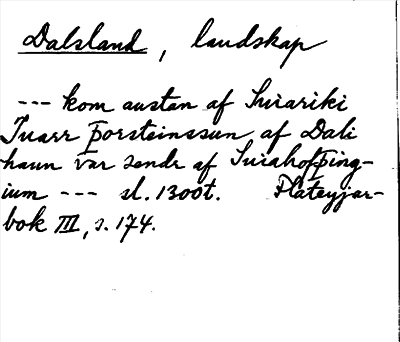 Dalsland, landskap
--- kom austan af Suiariki
Iuarr þorsteinssun af Dali
hann var sendr af Suiahofþing-
ium --- sl. 1300t. Flateyjar-
bok III, s. 174.